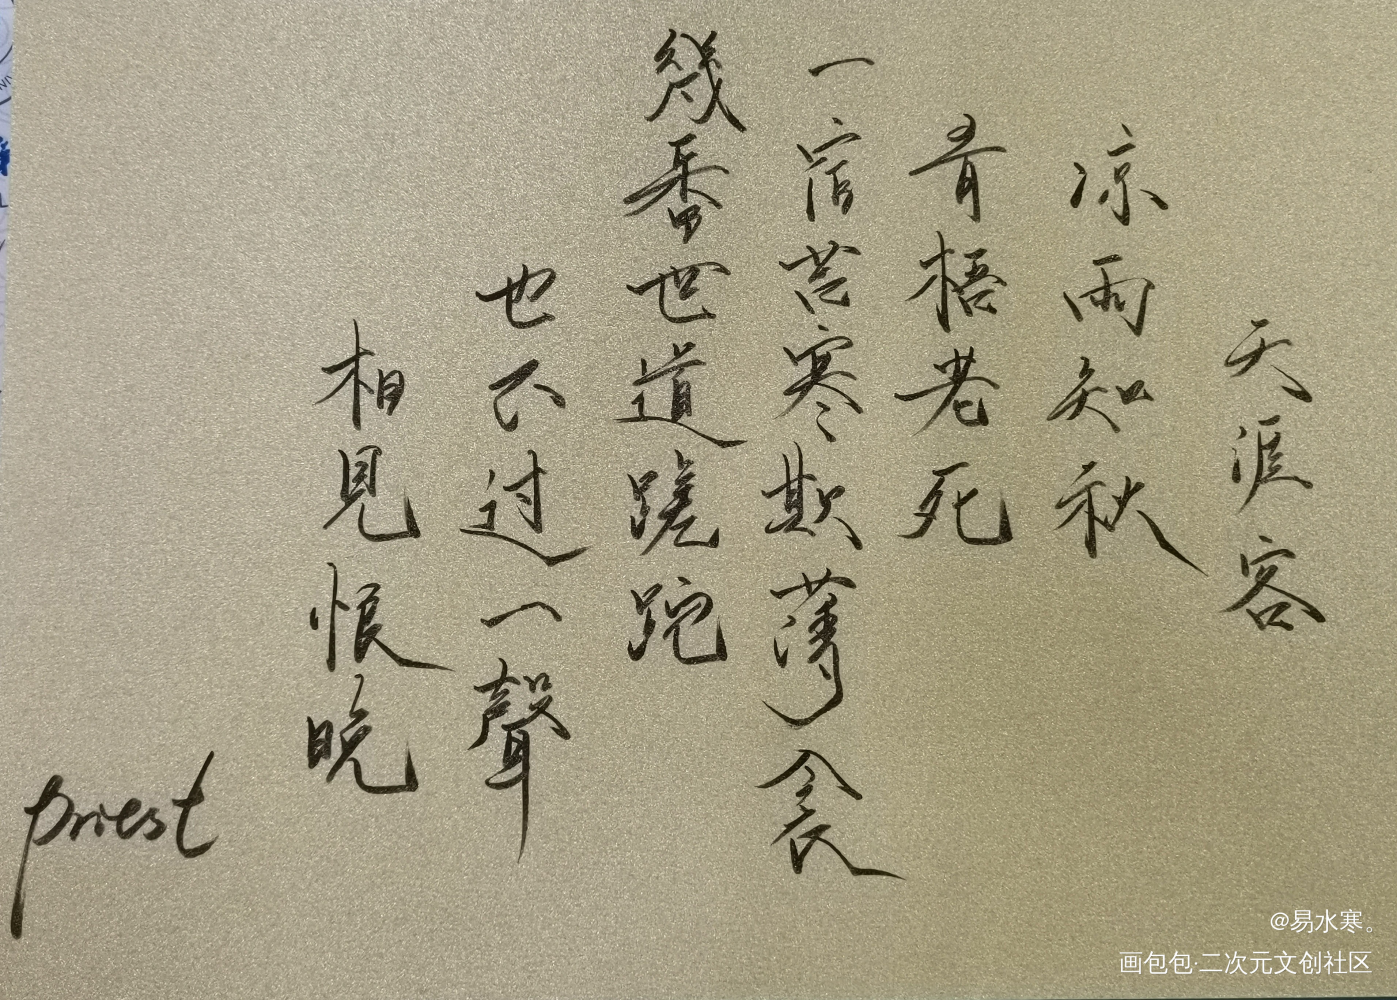 天涯客
凉雨知秋
青梧老死
一宿苦寒欺薄衾
幾番世道蹺跎
也不过一聲
相見恨晚
priest
@易水寒。
画包包·二次元文创社区